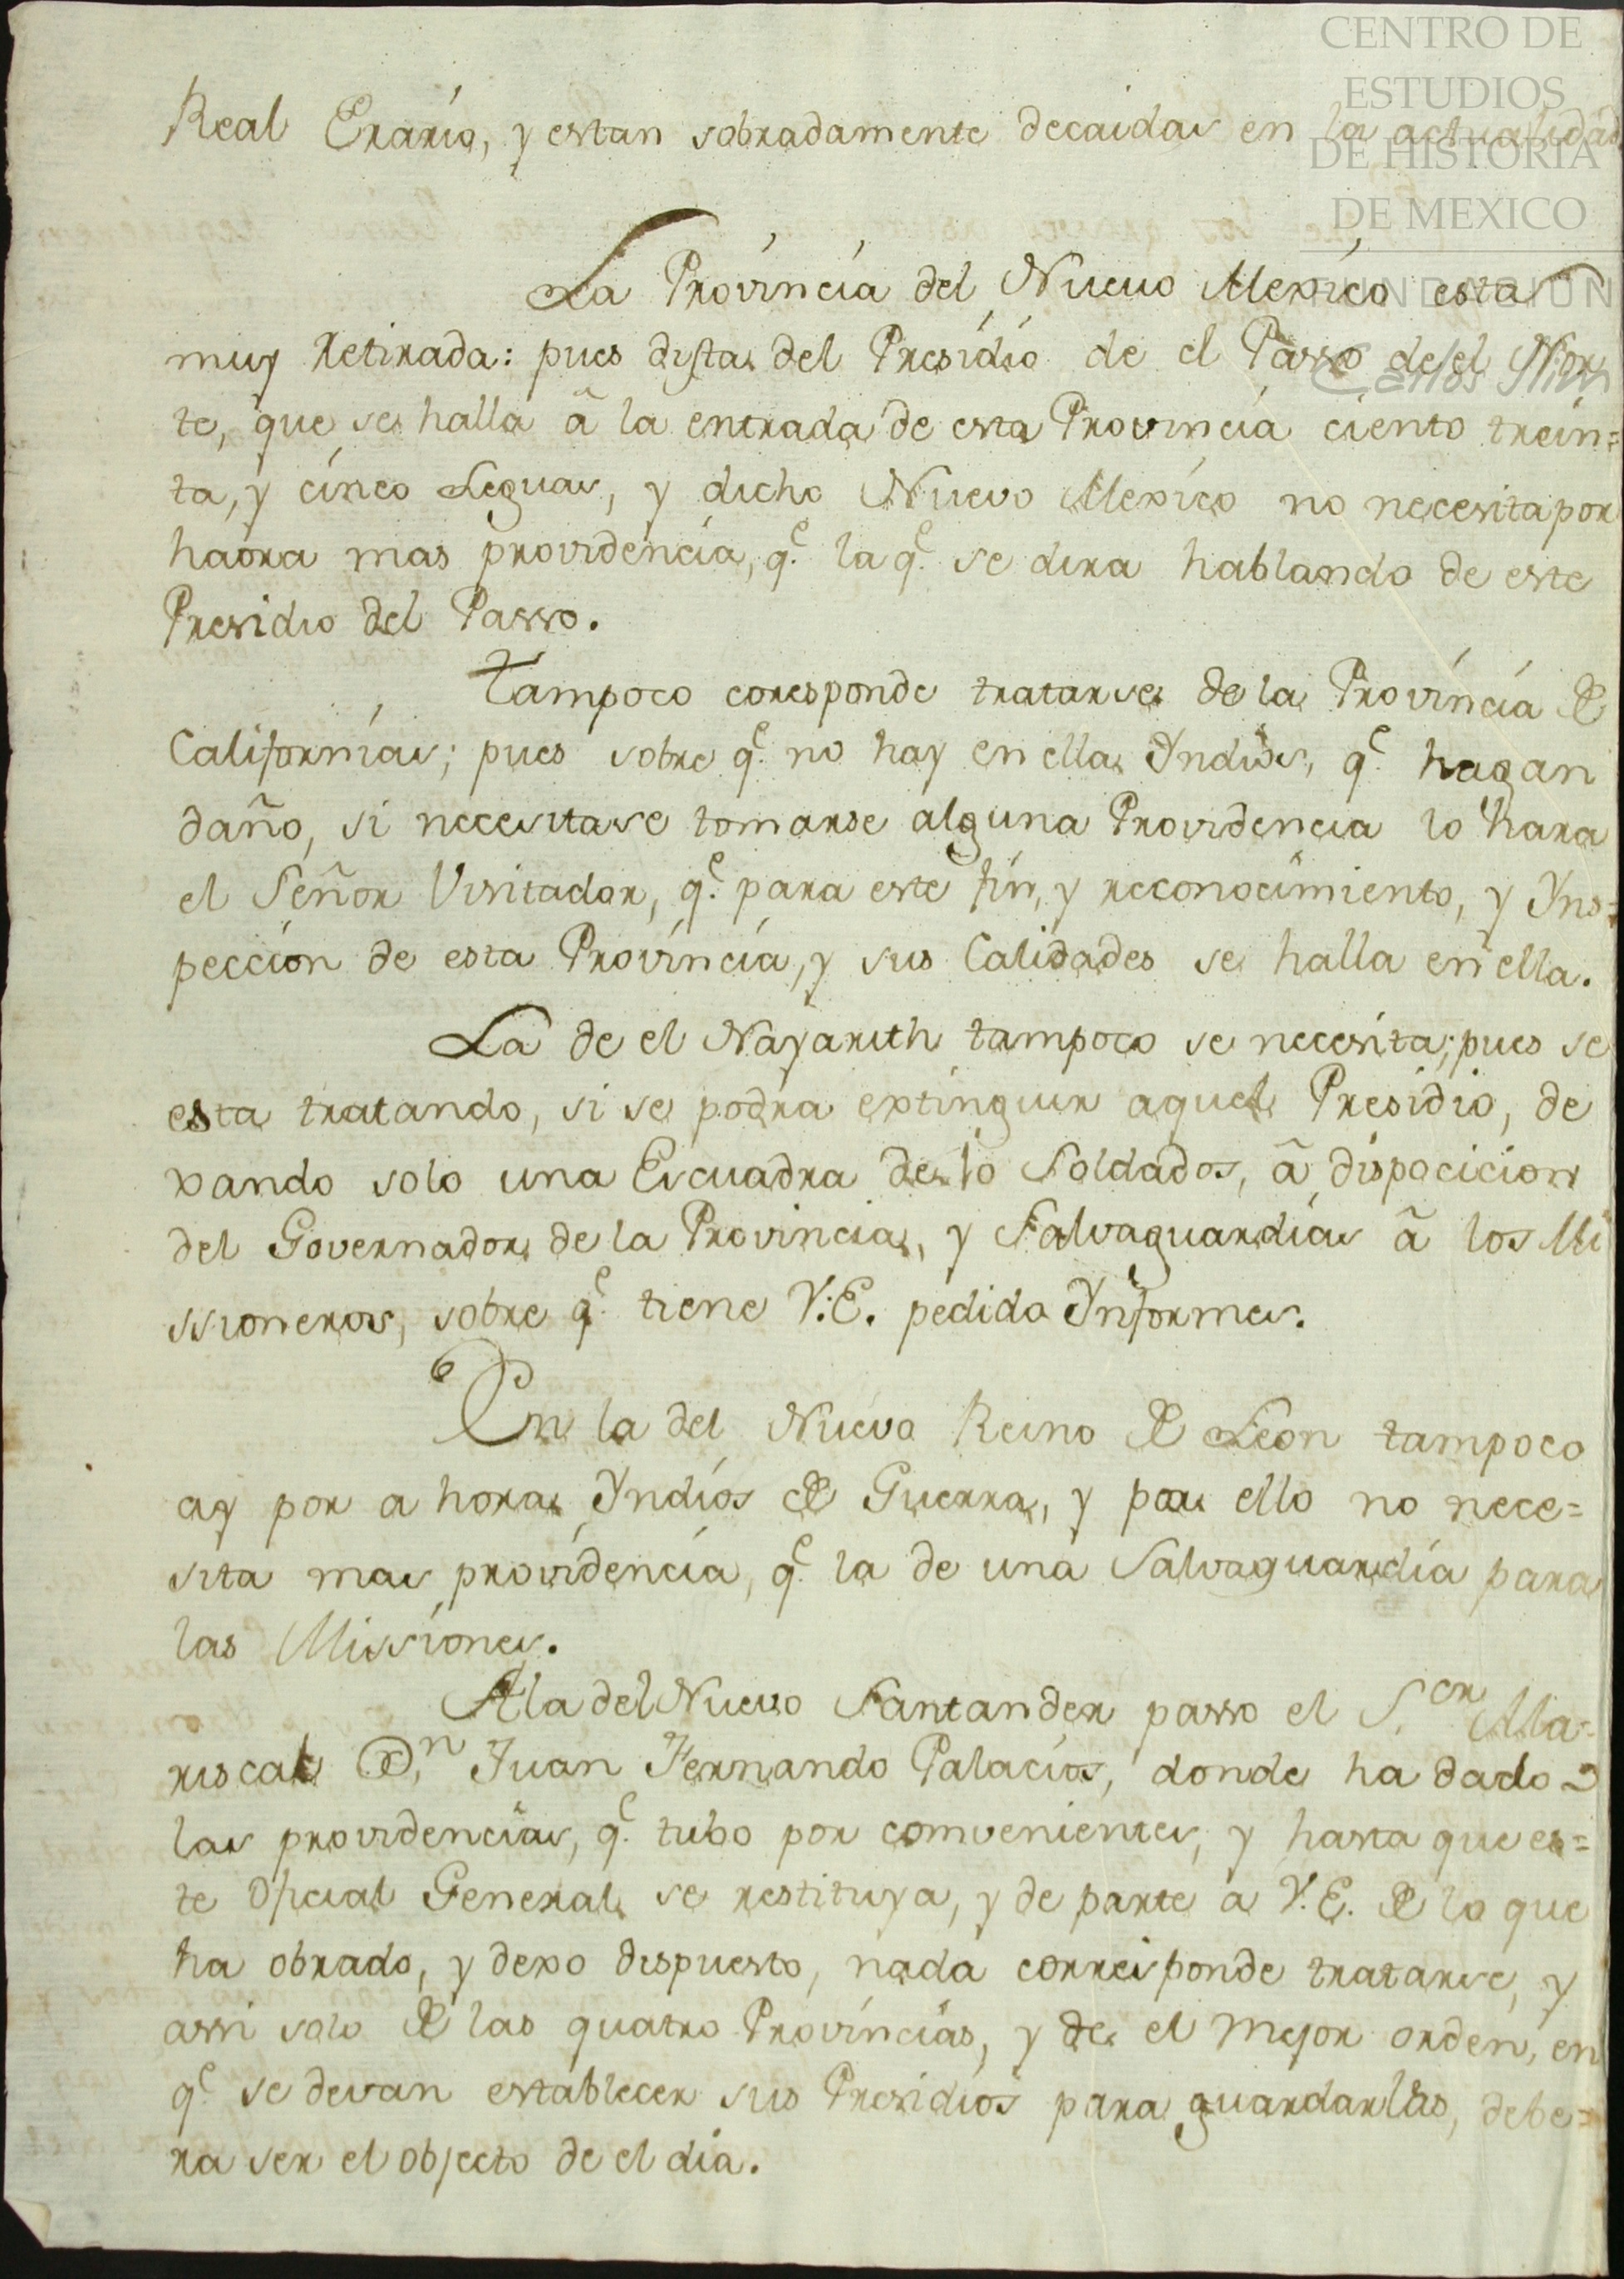 CENTRO DE
ESTUDIOS
DE HISTORIA
DE MEXICO
FUNDACION
Carlos Slim
Real Erario, y estan sobradamente decaidas en la actualidad
La Provincia del Nuevo Mexico esta
muy retirada: pues dista del Presidio de el Passo de el Nor
te, que se halla â la entrada de esta Provincia ciento trein=
ta, y cinco Leguas, y dicho Nuevo Mexico no necesita por
haora mas providencia, q.e la q.e se dira hablando de este
Presidio del Passo.
Tampoco coresponde tratarse de la Provincia de
Californias; pues sobre q.e no hay en ella Yndios, q.e hagan
daño, si necesitase tomarse alguna Providencia lo hara
el Señor Visitador, q.e para este fin, y reconocimiento, y Yns=
peccion de esta Provincia, y sus Calidades se halla en ella.
La de el Nayarith tampoco se necesita; pues se
esta tratando, si se podra extinguir aquel Presidio, de
xando solo una Escuadra de 10 Soldados, â dispocicion
del Governador de la Provincia, y Salvaguardias â los Mi
ssioneros, sobre q.e tiene V.E. pedido Ynformes.
En la del Nuevo Reino de Leon tampoco
ay por a hora Yndios de Guerra, y por ello no nece=
sita mas providencia, q.e la de una Salvaguardia para
las Missiones.
A la del Nuevo Santander passo el S.or Ma=
riscal D.n Juan Fernando Palacios, donde ha dado
las providencias, q.e tubo por convenientes, y hasta que es=
te Oficial General se restituya, y de parte a V.E. de lo que
ha obrado, y dexo dispuesto, nada corresponde tratarse, y
assi solo de las quatro Provincias, y de el mejor orden, en
q.e se devan establecer sus Presidios para guardarlas, debe=
ra ser el objecto de el dia.